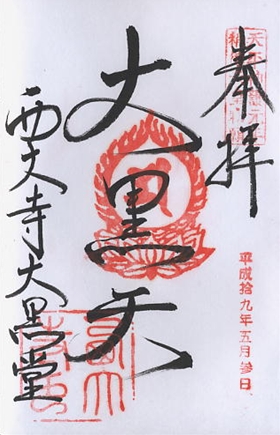 奉拝
大黒天
西大寺大黒堂
平成拾九年五月参日